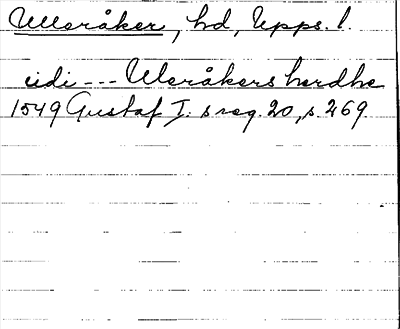 Ulleråker, hd, Upps. l.
udi --- Uleråkers herdhe
1549 Gustaf I:s reg. 20, s. 269.